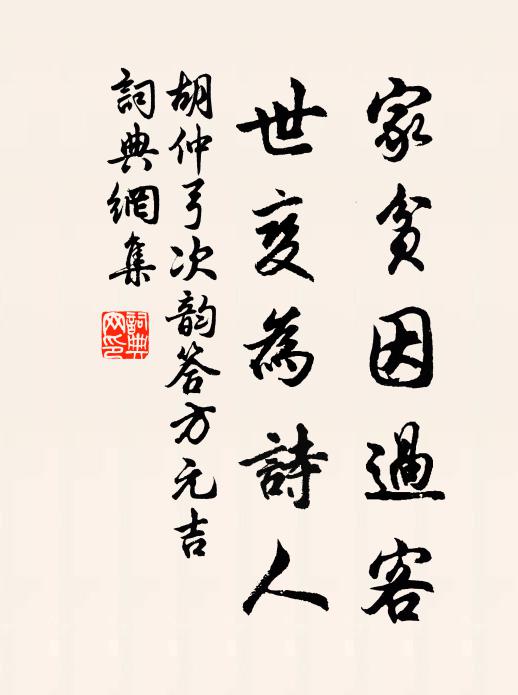 家貧因過客
世變為詩人
胡仲弓次韵答方元吉
詞典網集
詞典网印